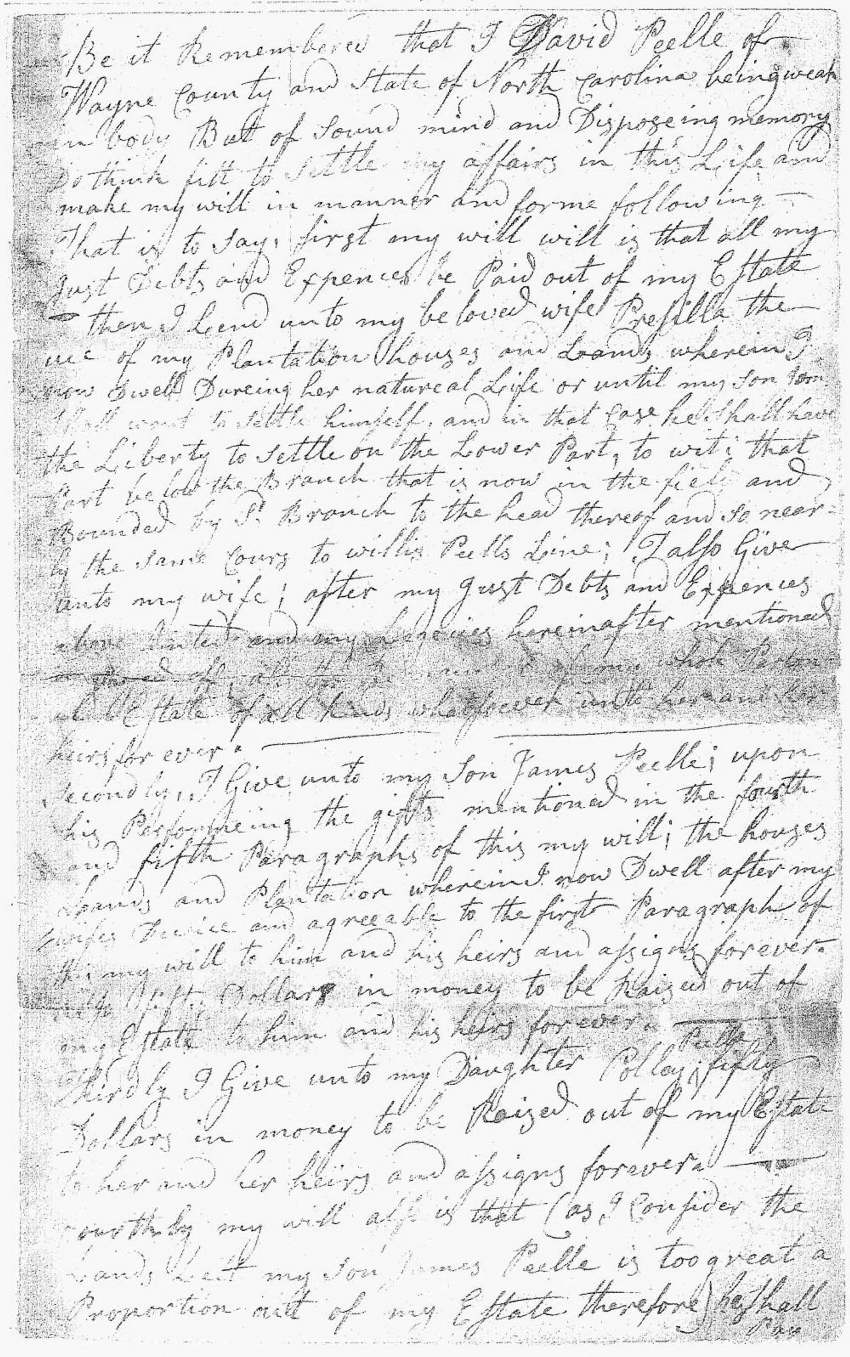 Be it Remembered that I David Peelle of
Wayne County and State of North Carolina being weak
in body But of Sound mind and Disposeing memory
Do think fitt to Settle my affairs in this Life and
make my will in manner and forme following
That is to say, first my will will is that all my
Just Debts and Expences be Paid out of my Estate
then I Lend unto my beloved wife Presilla the
use of my Plantation houses and Lands wherein I
now Dwell Dureing her natureal Life or until my son Jam
Shall want to Settle himself, and in that Case he Shall have
the Liberty to Settle on the Lower Part, to wit; that
Part below the Branch that is now in the field and
Bounded by Sd. Branch to the head thereof and so near
by the same Cours to willis Peells Line; I also Give
unto my wife; after my Just Debts and Expences
above and my Legecies hereinafter mentioned
of my whole Person
al Estate of all kinds whatsoever unto her and her
heirs for ever.
Secondly, I Give unto my Son James Peelle; upon
his Performeing the gifts mentioned in the fourth
and fifth Paragraphs of this my will; the houses
Lands and Plantation wherein I now Dwell after my
wifes and agreeable to the first Paragraph of
this my will to him and his heirs and assigns forever.
Dollars in money to be Raised out of
my Estate to him and his heirs for ever.
Thirdly I Give unto my Daughter Polley Peelle; fifty
Dollars in money to be Raised out of my Estate
to her and her heirs and assigns forever.
fourthly my will also is that (as I Consider the
Lands Left my Son James Peelle is too great a
Proportion out of my Estate therefore) he Shall
Pay